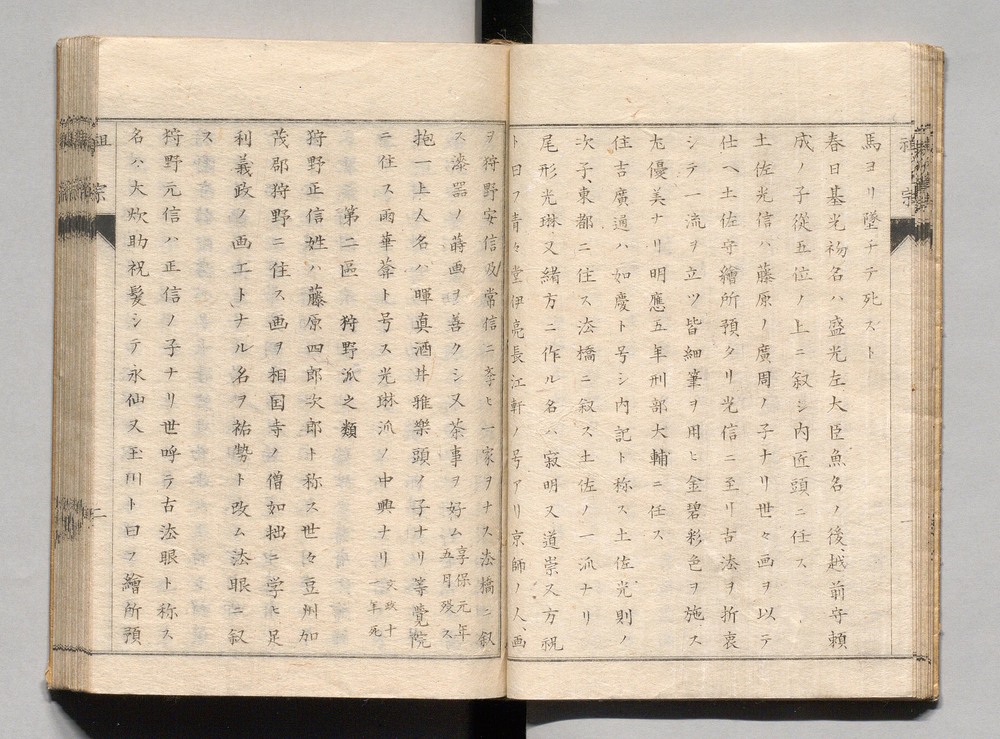 馬ヨリ墜チテ死スト
春日基光初名ハ盛光左大臣魚名ノ後、越前守頼
成ノ子從五位ノ上ニ叙シ内匠頭ニ任ス
土佐光信ハ藤原ノ廣周ノ子ナリ世々画ヲ以テ
仕ヘ土佐守繪所預タリ光信ニ至リ古法ヲ折衷
シテ一流ヲ立ツ皆細筆ヲ用ヒ金碧彩色ヲ施ス
尤優美ナリ明應五年刑部大輔ニ任ス
住吉廣通ハ如慶ト号シ内記ト称ス土佐光則ノ
次子、東都ニ住ス法橋ニ叙ス土佐ノ一派ナリ
尾形光琳又緒方ニ作ル名ハ寂明又道崇又方祝
ト曰フ青々堂伊亮長江軒ノ号アリ京師ノ人、画
ヲ狩野安信及常信ニ学ヒ一家ヲナス法橋ニ叙
ス漆器ノ蒔画ヲ善クシ又茶事ヲ好ム享保元年五月歿ス
抱一上人名ハ暉真酒井雅樂頭ノ子ナリ等覺院
ニ住ス雨華葊ト号ス光琳派ノ中興ナリ文政十年死
第二區 狩野派之類
狩野正信姓ハ藤原四郎次郎ト称ス世々豆州加
茂郡狩野ニ住ス画ヲ相国寺ノ僧如拙ニ学ヒ足
利義政ノ画工トナル名ヲ祐勢ト改ム法眼ニ叙
ス
狩野元信ハ正信ノ子ナリ世呼テ古法眼ト称ス
名ハ大炊助祝髪シテ永仙又玉川ト曰フ繪所預